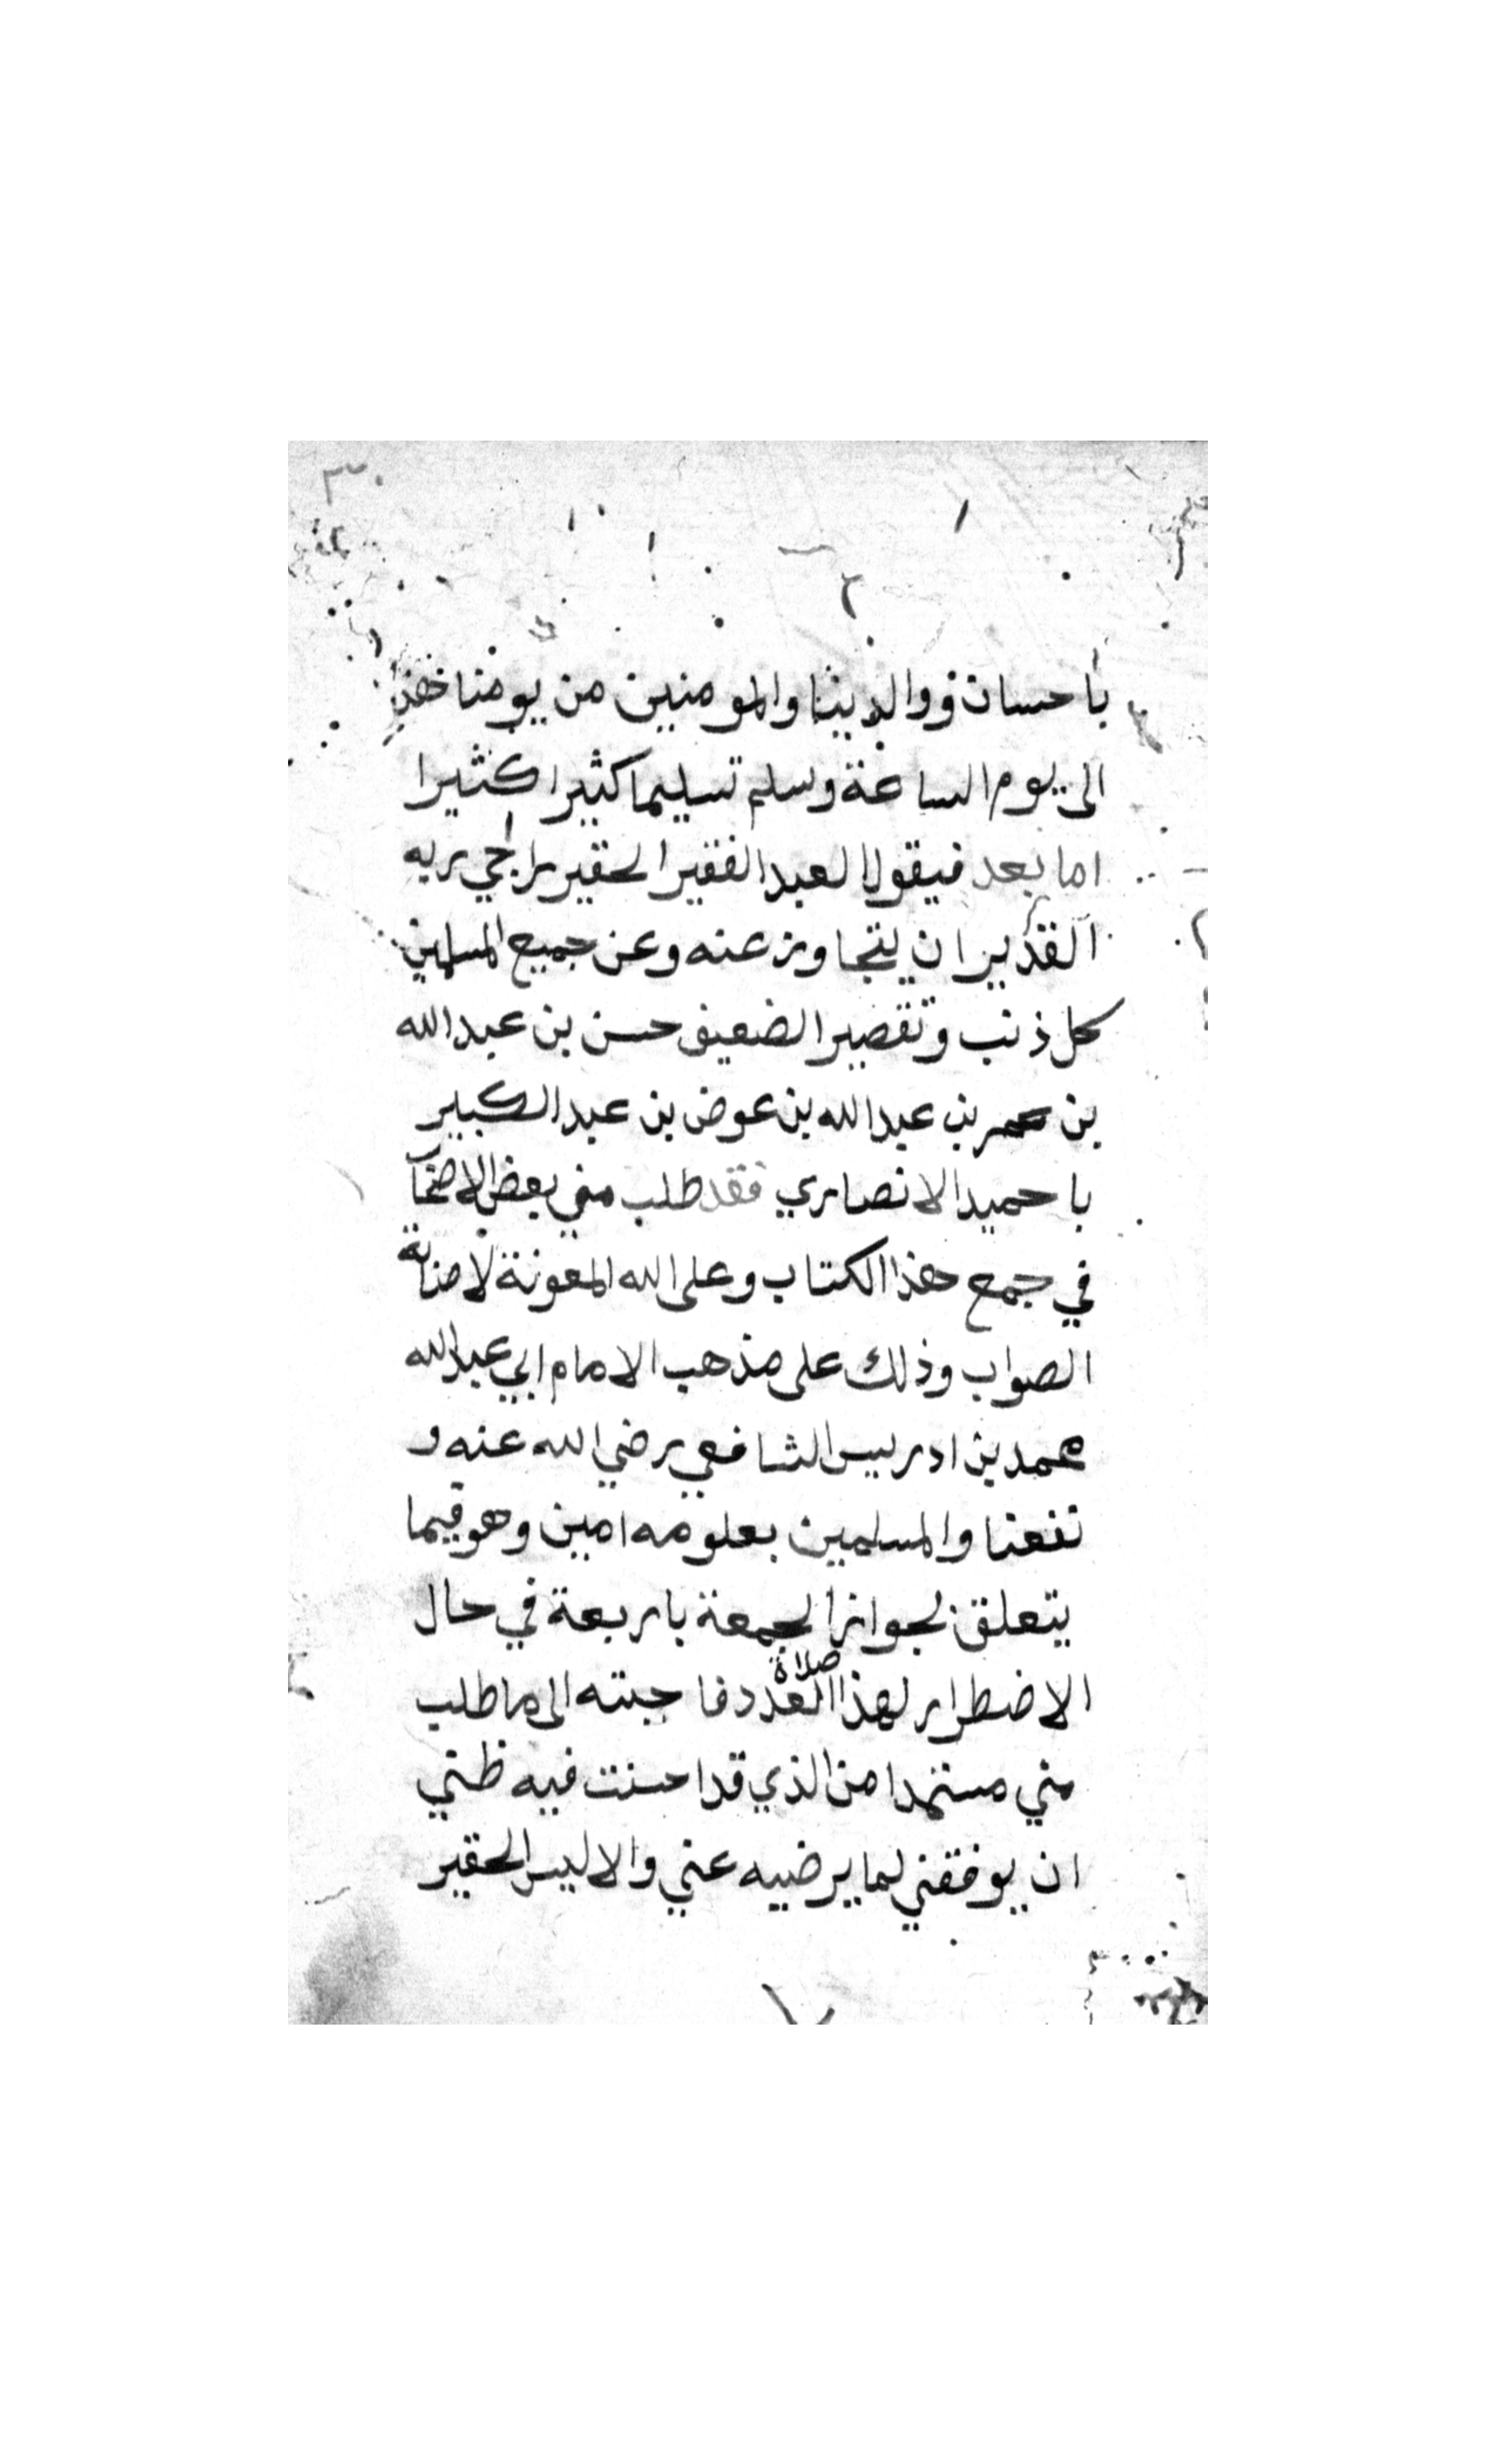 باحسان ووالدينا والمومنين من يومنا هذا
الى يوم الساعة وسلم تسليما كثيرا كثيرا
اما بعد فيقول العبد الفقير الحقير راجي ربه
القدير ان يتجاوز عنه وعن جميع المسلمين
كل ذنب وتقصير الضعيف حسن بن عبدالله
بن عمر بن عبدالله بن عوض بن عبدالكبير
باحميد الانصاري فقد طلب مني بعض الاصحاب
في جمع هذا الكتاب وعلى الله المعونة
الصواب وذلك على مذهب الامام ابي عبدالله
محمد بن ادريس الشافعي رضي الله عنه و
نفعنا والمسلمين بعلومه امين وهو فيما
يتعلق لجواز الجمعة باربعة في حال
الاضطرار لهذا العدد فاجبته الى ما طلب
صلاة
مني مستمدا من الذي قد احسنت فيه ظني
ان يوفقني لما يرضيه عني والا ليس الحقير